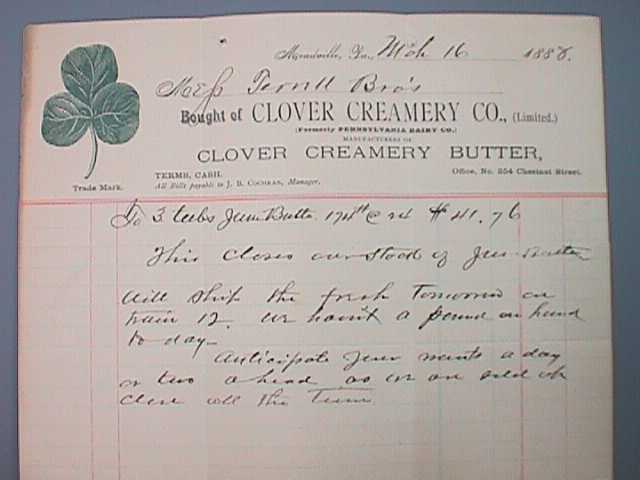 Meadville, Pa., Mch 16 1888.
Mess Terrill Bro's
Bought of CLOVER CREAMERY CO., (Limited.)
(Formerly PENNSYLVANIA DAIRY CO.)
MANUFACTURERS OF
CLOVER CREAMERY BUTTER,
TERMS, CASH.
Office, No. 254 Chestnut Street.
All Bills payable to J. B. COCHRAN, Manager.
Trade Mark.
To 3 tubs June Butter 174 lb @ 24 $41.76
This closes our stock of June Butter
Will ship the fresh Tomorrow on
train 12. we havn't a pound on hand
to day—
Anticipate your wants a day
or two ahead as we are sold up
close all the Time